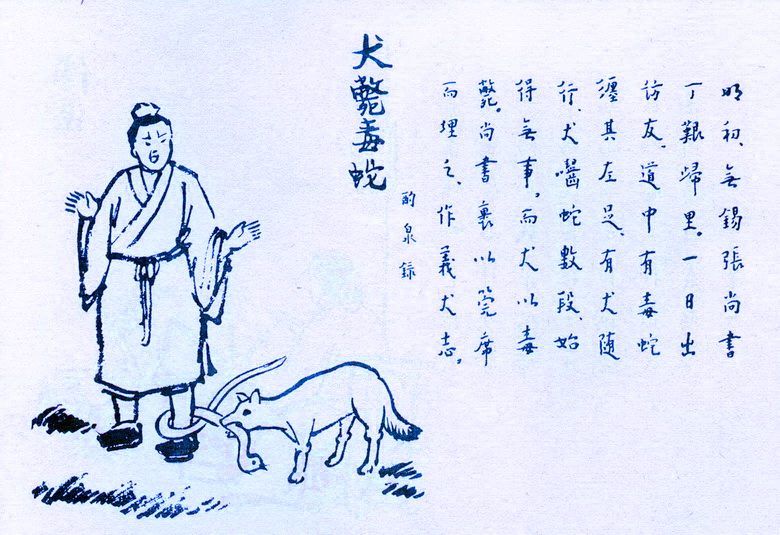 明初、無錫張尚書
丁艱歸里。一日出
訪友、道中有毒蛇
纏其左足、有犬隨
行、犬囓蛇數段、始
得無事，而犬以毒
斃。尚書裹以筦席
而埋之、作義犬志。
酌泉錄
犬斃毒蛇